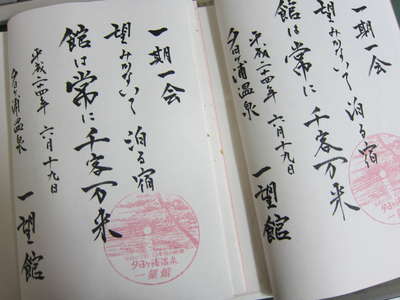 一期一会
望みかないて 泊る宿
館は常に千客万来
平成二十四年 六月十九日
夕日ヶ浦温泉
一望館
夕日ヶ浦温泉
一望館
一期一会
望みかないて 泊る宿
館は常に千客万来
平成二十四年 六月十九日
夕日ヶ浦温泉
一望館